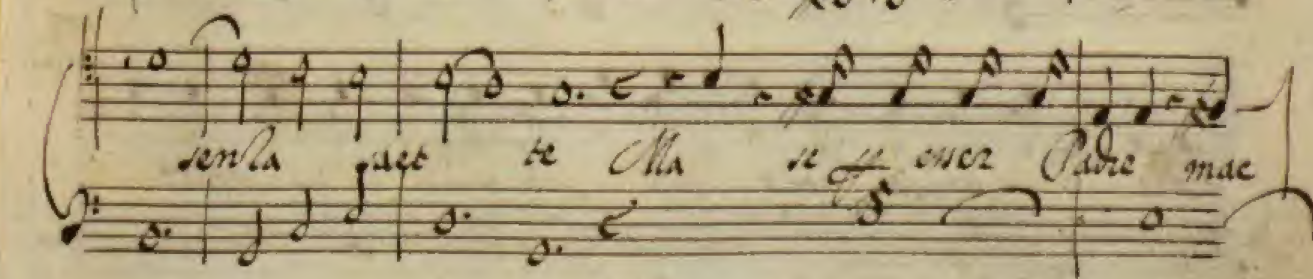 senza pace te Ma se esser Padre mae